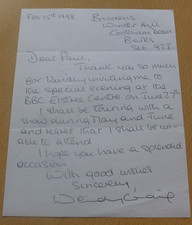 Feb 15th 1998
Winter Hill
Cookham Dean
Berks
SL6 9TT
Dear Paul,
Thank you so much
for kindly inviting me to
the special evening at the
BBC Centre on June
I shall be touring with a
show during May and June
and regret that I shall be un-
able to attend
I hope you have a splendid
occasion
With good wishes
Sincerely,
Wendy Craig